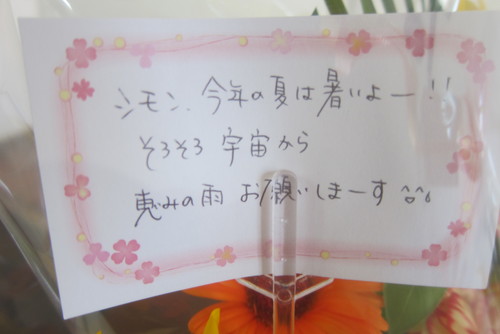 シモン、今年の夏は暑いよー!!
そろそろ宇宙から
恵みの雨 お願いしまーす^^